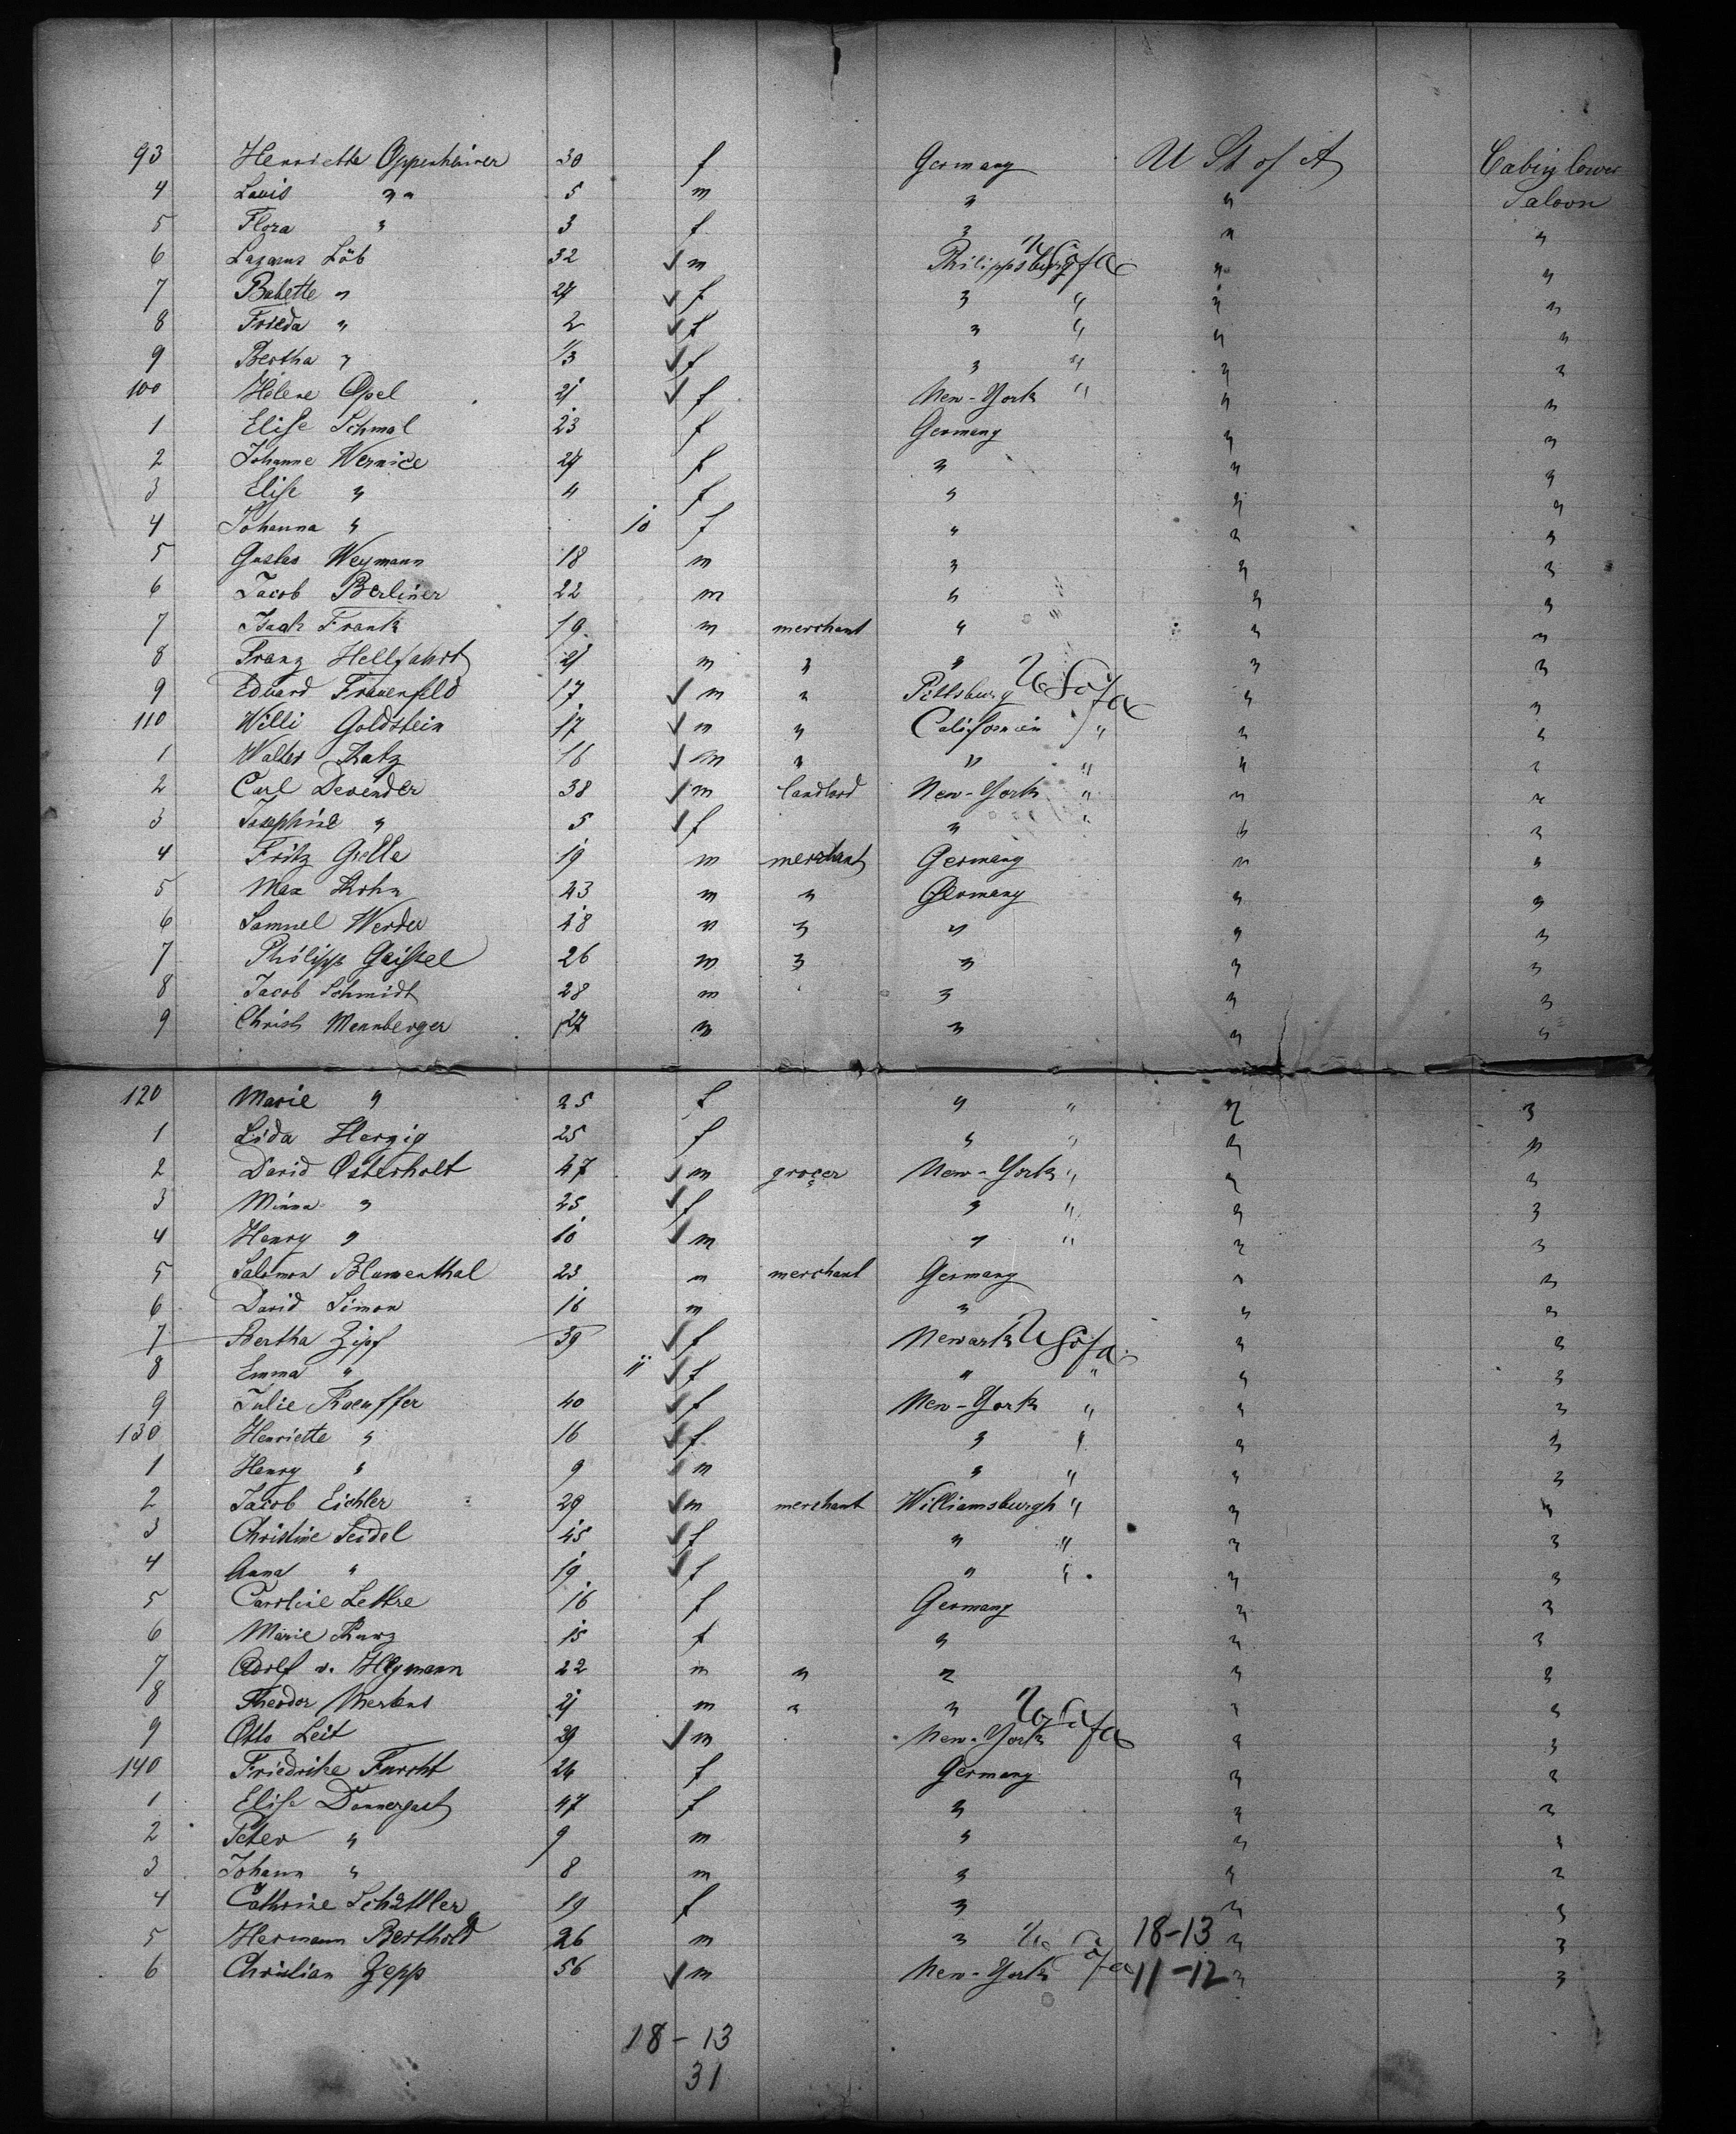 93 Henriette Oppenheimer 30 f Germany U St of A Cabin lower
4 Louis " 5 m " " Saloon
5 Flora " 3 f " " "
6 Lazarus Löb 32 ✓ m Philippsburg U S of A " "
7 Babette " 27 ✓ f " " " "
8 Frieda " 2 ✓ f " " " "
9 Bertha " 1/3 ✓ f " " " "
100 Helene Opel 21 ✓ f New-York " " "
1 Elise Schmal 23 f Germany " "
2 Johanne Wernice 27 f " " "
3 Elise " 4 f " " "
4 Johanna " 10 f " " "
5 Gustav Weymann 18 m " " "
6 Jacob Berliner 22 m " " "
7 Isack Frank 19 m merchant " " "
8 Franz Hellfahrt 21 m " " " "
9 Eduard Frauenfeld 17 ✓ m " Pittsburg U S of A " "
110 Willi Goldstein 17 ✓ m " Californien " " "
1 Walter Katz 16 ✓ m " " " " "
2 Carl Devender 38 ✓ m landlord New-York " " "
3 Josephine " 5 ✓ f " " " "
4 Fritz Grelle 19 m merchant Germany " "
5 Max Kohn 23 m " Germany " "
6 Samuel Werder 18 m " " " "
7 Philipp Geissel 26 m " " " "
8 Jacob Schmidt 28 m " " "
9 Christ Mennberger 27 m " " "
120 Marie " 25 f " " " "
1 Lida Herzig 25 f " " " "
2 David Osterholt 47 ✓ m grocer New-York " " "
3 Minna " 25 ✓ f " " " "
4 Henry " 10 ✓ m " " " "
5 Salomon Blumenthal 23 m merchant Germany " "
6 David Simon 16 m " " "
7 Bertha Zipf 39 ✓ f Newark U S of A " "
8 Emma " 11 ✓ f " " " "
9 Julie Kaeuffer 40 ✓ f New-York " " "
130 Henriette " 16 ✓ f " " " "
1 Henry " 9 ✓ m " " " "
2 Jacob Eichler 29 ✓ m merchant Williamsburgh " " "
3 Christine Seidel 45 ✓ f " " " "
4 Anna " 19 ✓ f " " " "
5 Caroline Lettre 16 f Germany " "
6 Marie Kurz 15 f " " "
7 Adolf v. Heymann 22 m " " " "
8 Theodor Mertens 21 m " " " "
9 Otto Leit 29 ✓ m New-York U S of A " "
140 Friedrike Furcht 26 f Germany " "
1 Elise Donnergast 47 f " " "
2 Peter " 9 m " " "
3 Johann " 8 m " " "
4 Cathrine Schüttler 19 f " " "
5 Hermann Berthold 26 m " 18-13 " "
6 Christian Zepp 56 ✓ m New-York U S of A 11-12 " "
18-13
31